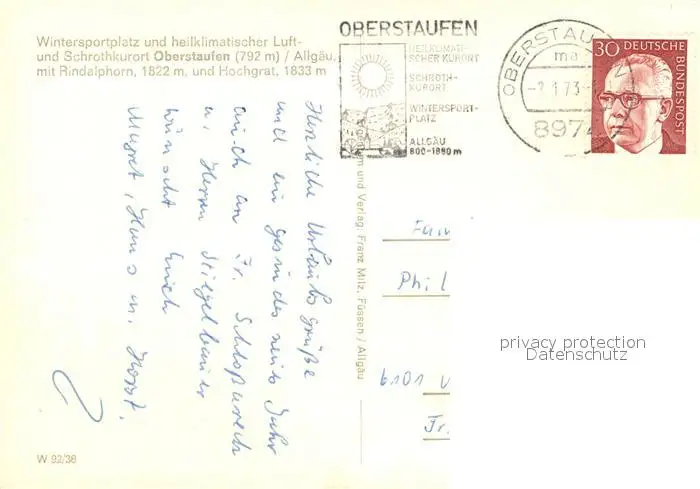 Wintersportplatz und heilklimatischer Luft-
und Schrothkurort Oberstaufen (792 m) / Allgäu,
mit Rindalphorn, 1822 m, und Hochgrat, 1833 m
OBERSTAUFEN
HEILKLIMATI-
SCHER KURORT
SCHROTH-
KURORT
WINTERSPORT-
PLATZ
ALLGÄU
800-1880 m
OBERSTAUFEN
ma
1.73
897
30 DEUTSCHE
BUNDESPOST
Herzliche Urlaubsgrüße
und ein gesundes neues Jahr
auch an Fr. Schloßureich
u. Herrn Stiegelbauer
wünscht Euch
Margret, Hans u. Horst.
und Verlag: Franz Milz, Füssen / Allgäu
Fam
Phil
6101
Fr.
privacy protection
Datenschutz
W 92/38